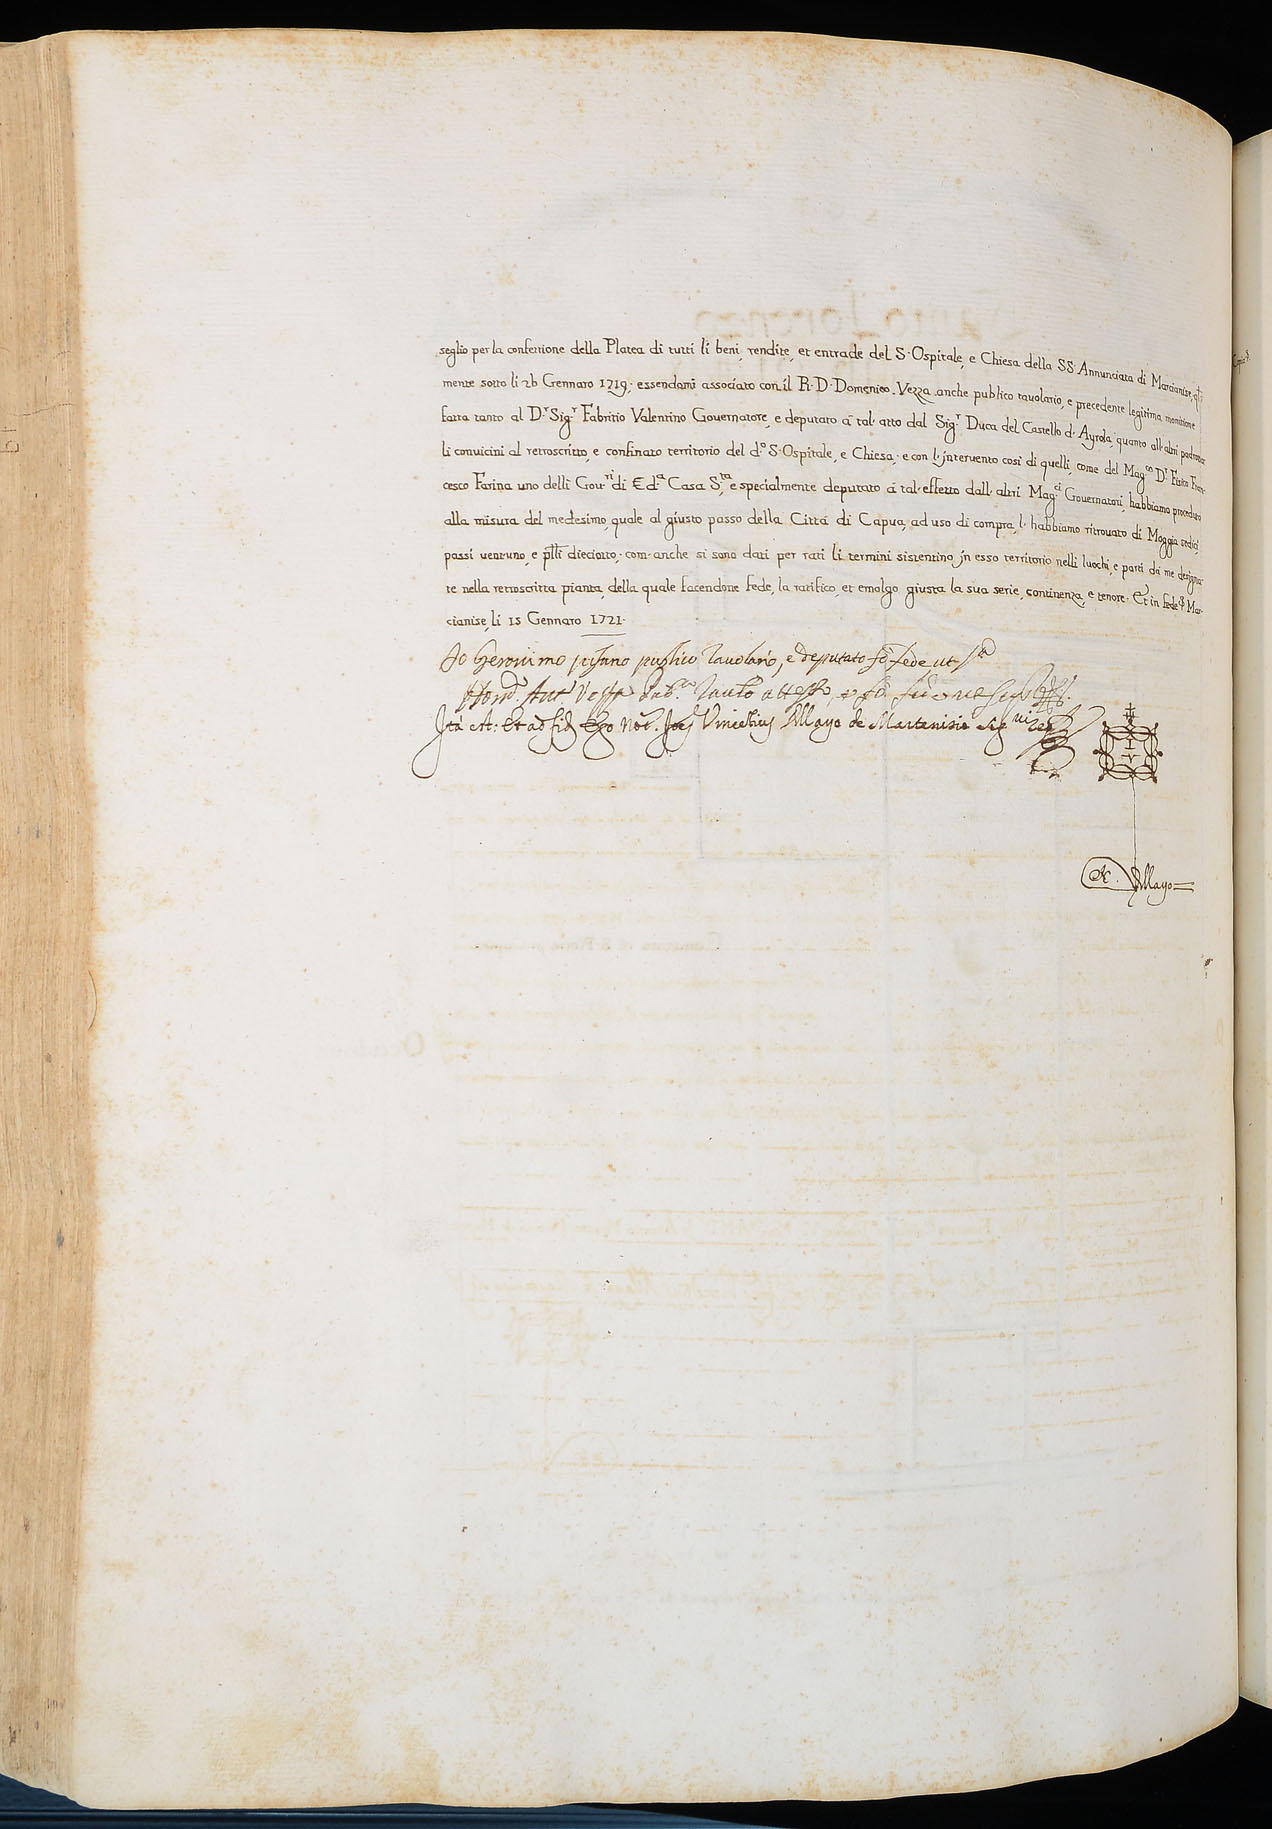 seglio per la confettione della Platea di tutti li beni, rendite, et entrade del S. Ospitale, e Chiesa della SS. Annunciata di Marcianise,
mente sotto li 26 Gennaro 1719; essendomi associato con il R. D. Domenico Vezza anche publico tavolario, e precedente legitima monitione
fatta tanto al D.r Sig.r Fabritio Valentino Governatore, e deputato à tal' atto dal Sig.r Duca del Castello d' Ayrola, quanto all' altri padroni
li convicini al retroscritto, e confinato territorio del d.o S. Ospitale, e Chiesa; e con l' intervento così di quelli, come del Mag.co D.r Fisico Fran-
cesco Farina uno delli Gov.ri di E d.a Casa S.ta, e specialmente deputato à tal' effetto dall' altri Mag.ci Governatori, habbiamo proceduto
alla misura del medesimo, quale al giusto passo della Città di Capua, ad uso di compra, l' habbiamo ritrovato di Moggia sedici,
passi ventuno, e p̃tti dieciotto; com' anche si sono dati per rati li termini sistentino in esso territorio nelli luochi, e parti da me designa-
te nella retroscritta pianta, della quale facendone fede, la ratifico, et emolgo giusta la sua serie, continenza, e tenore. Et in fede Mar-
cianise, li 15 Gennaro 1721.
Io Geronimo publico Tavolario, e deputato fò fede, ut s.a
Ita est: Et ad fid. Ego Not. Joes Vincetius Mayo de Martenisio sig.vi req.
Mayo